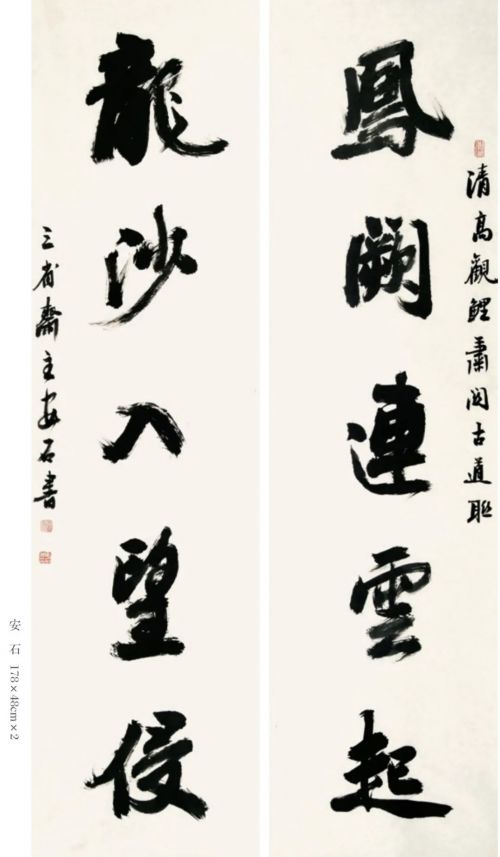 清高觀鯉蕭関古道聯
鳳闕連雲起
龍沙入望侵
三省齋主安石書
安 石 178×48cm×2